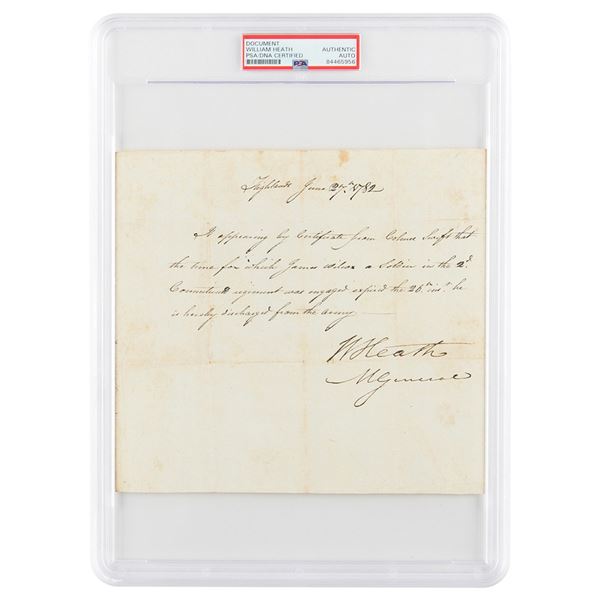 DOCUMENT
WILLIAM HEATH
PSA/DNA CERTIFIED
AUTHENTIC
AUTO
84465956
PSA
Highlands June 27th 1782
It appearing by Certificate from Colonel Swift that
the time for which James Wilson a Soldier in the 2d
Connecticut regiment was engaged expired the 26th inst he
is hereby discharged from the army
W Heath
M General